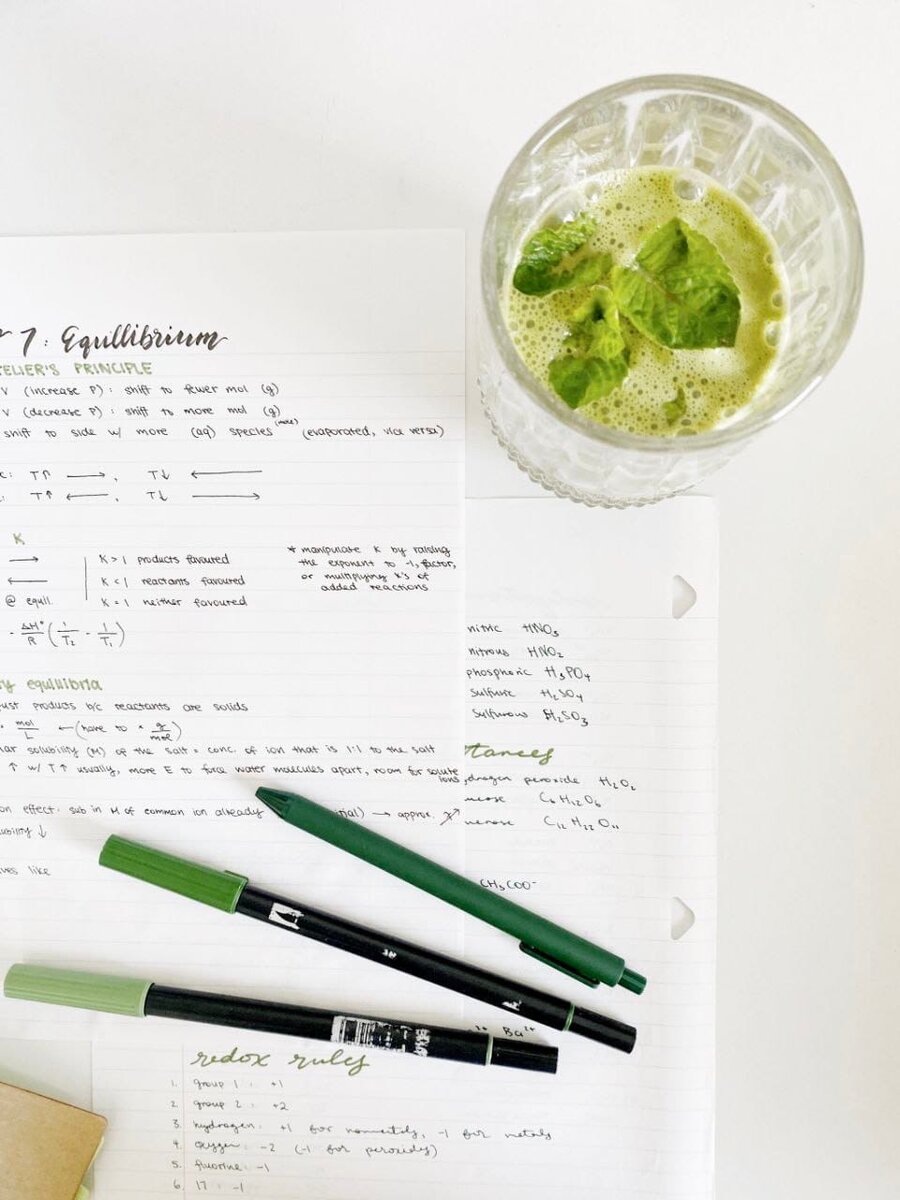 7: Equillibrium
TELIER'S PRINCIPLE
V (increase P): shift to fewer mol (g)
V (decrease P): shift to more mol (g)
shift to side w/ more (aq) species (more) (evaporated, vica versa)
: T↑ → , T↓ ←
: T↑ ← , T↓ →
K
→ K > 1 products favoured
← K < 1 reactants favoured
@ equil. K = 1 neither favoured
* manipulate K by raising
the exponent to -1, factor,
or multiplying K's of
added reactions
- ΔH°/R (1/T₂ - 1/T₁)
y equilibria
ust products b/c reactants are solids
mol/L ← (have to × g/mol)
ar solubility (M) of the salt = conc. of ion that is 1:1 to the salt
↑ w/ T↑ usually, more E to force water molecules apart, room for solute
ions
on effect: sub in M of common ion already tial) → approx.
ubility ↓
ves like
nitric HNO₃
nitrous HNO₂
phosphoric H₃PO₄
sulfuric H₂SO₄
sulfurous H₂SO₃
tances
drogen peroxide H₂O₂
ucose C₆H₁₂O₆
ucrose C₁₂H₂₂O₁₁
CH₃COO⁻
Ba²⁺
redox rules
1. group 1: +1
2. group 2: +2
3. hydrogen: +1 for nonmetals, -1 for metals
4. oxygen: -2 (-1 for peroxides)
5. fluorine: -1
6. 17: -1